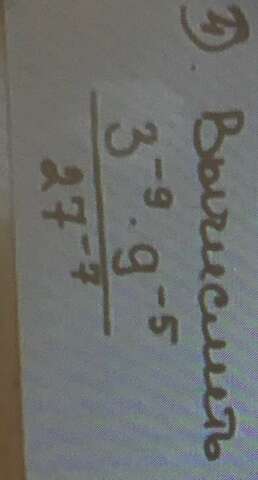 4) Вычислить
3⁻⁹ · 9⁻⁵
27⁻⁷